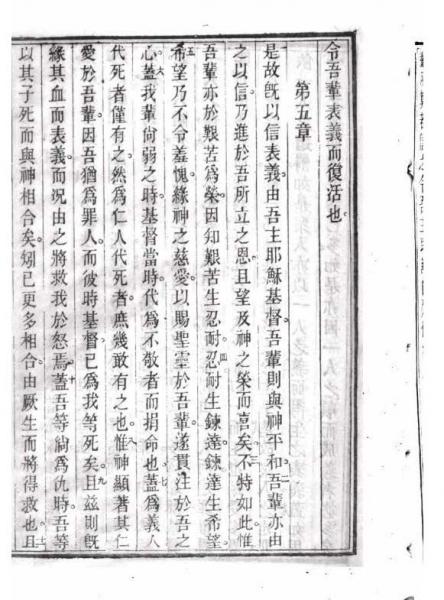 令吾輩表義而復活也
第五章
是故既以信表義由吾主耶穌基督吾輩則與神平和吾輩亦由
之以信乃進於吾所立之恩且望及神之榮而喜矣不特如此惟
吾輩亦於艱苦爲榮因知艱苦生忍耐忍耐生鍊達鍊達生希望
希望乃不令羞愧緣神之慈愛以賜聖靈於吾輩遂貫注於吾之
心蓋我輩尙弱之時基督當時代爲不敬者而捐命也蓋爲義人
代死者僅有之然爲仁人代死者庶幾敢有之也惟神顯著其仁
愛於吾輩因吾猶爲罪人而彼時基督已爲我等死矣且茲則既
緣其血而表義而況由之將救我於怒焉蓋吾等尙爲仇時吾等
以其子死而與神相合矣矧已更多相合由厥生而將得救也且